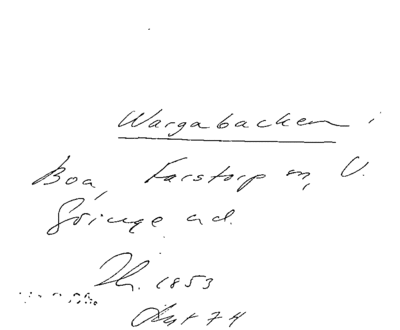 Wargabacken i
Boa, Farstorp sn, V.
Göinge hd.
Th. 1853